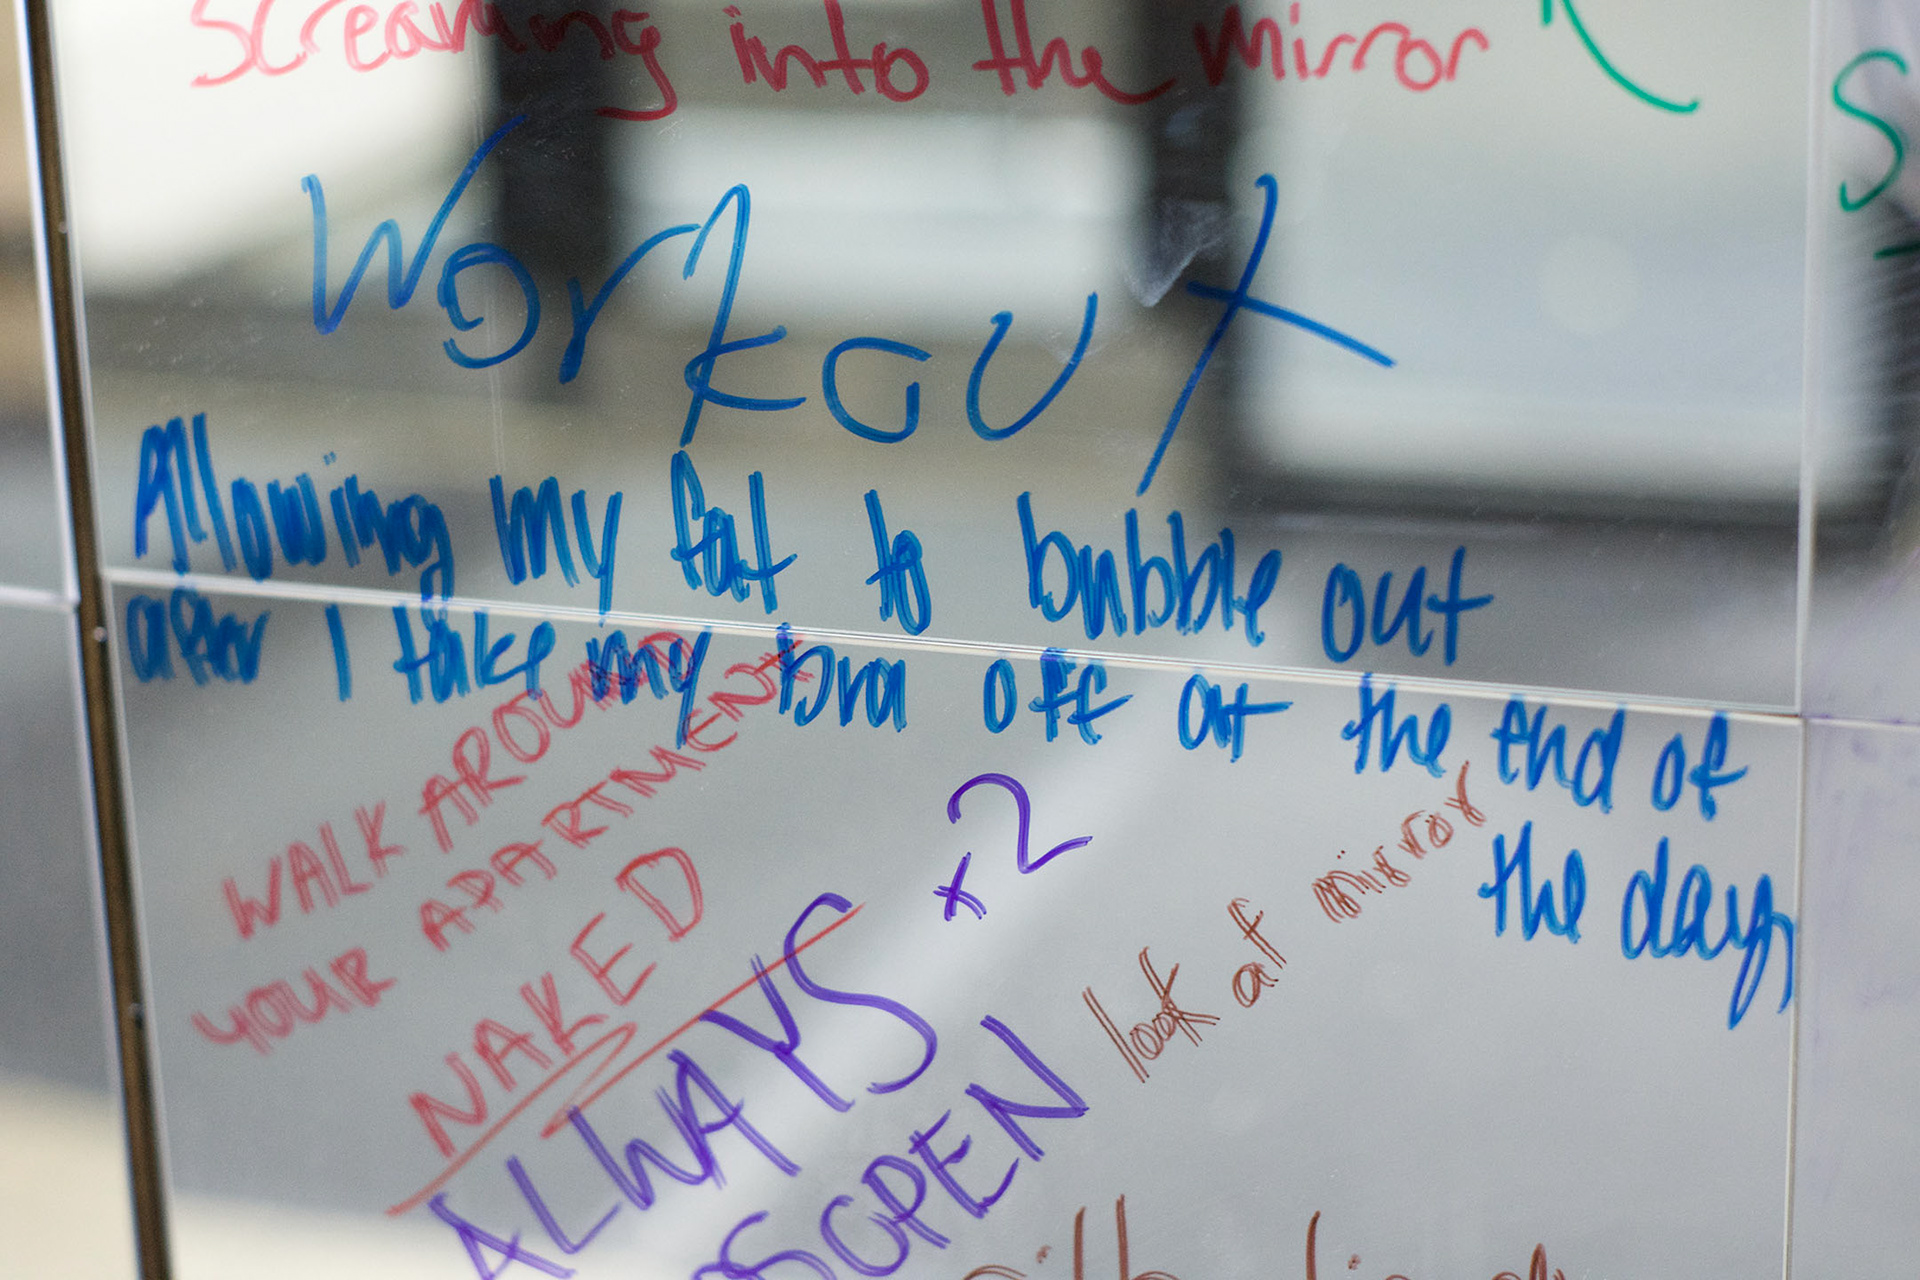 Screaming into the mirror
Workout
Allowing my fat to bubble out
after I take my bra off at the end of
the day,
WALK AROUND
YOUR APARTMENT
NAKED
x2
look at mirror
ALWAYS
OPEN